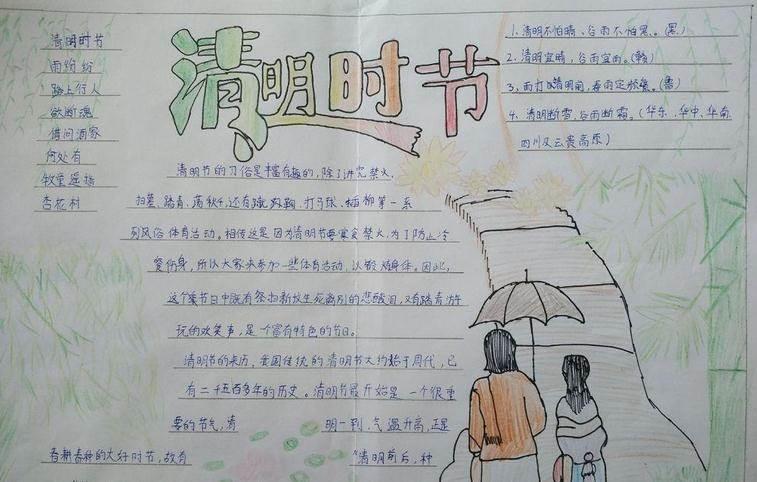 清明时节
清明时节
雨纷纷
路上行人
欲断魂
借问酒家
何处有
牧童遥指
杏花村
1. 清明不怕晴、谷雨不怕黑。(黑)
2. 清明宜晴,谷雨宜雨。(赣)
3. 雨打清明前,春雨定频繁。(鲁)
4. 清明断雪,谷雨断霜。(华东、华中、华南
四川及云贵高原)
清明节的习俗是丰富有趣的,除了讲究禁火、
扫墓、踏青、荡秋千,还有蹴鞠、打马球、插柳等一系
列风俗体育活动。相传这是因为清明节要寒食禁火,为了防止冷
餐伤身,所以大家来参加一些体育活动,以锻炼身体。因此,
这个节日中既有祭扫新坟生死离别的悲酸泪,又有踏青游
玩的欢笑声,是一个富有特色的节日。
清明节的来历,我国传统的清明节大约始于周代,已
有二千五百多年的历史。清明节最开始是一个很重
要的节气,清 明一到,气温升高,正是
春耕春种的大好时节,故有 "清明前后,种